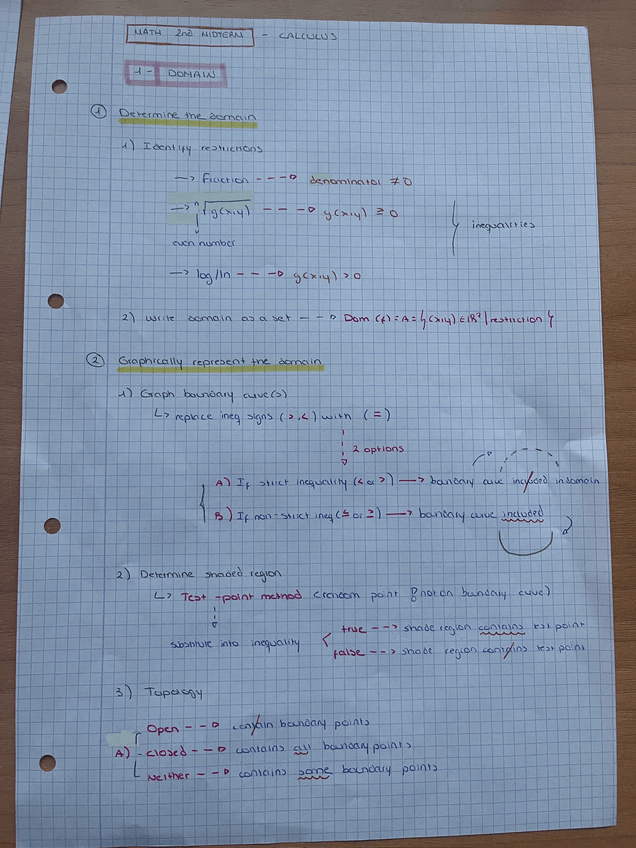 MATH 2nd MIDTERM - CALCULUS
1 - DOMAIN
① Determine the domain
1) Identify restrictions
→ Fraction ---▷ denominator ≠ 0
→ ⁿ√g(x,y) ---▷ g(x,y) ≥ 0
even number
inequalities
→ log/ln ---▷ g(x,y) > 0
2) Write domain as a set ---▷ Dom (f) = A = {(x,y) ∈ ℝ² | restriction }
② Graphically represent the domain
1) Graph boundary curve(s)
↳ replace ineq signs (>,<) with (=)
2 options
A) If strict inequality (< or >) → boundary curve included in domain
B) If non-strict ineq (≤ or ≥) → boundary curve included
2) Determine shaded region
↳ Test-point method (random point P not on boundary curve)
substitute into inequality
true --> shade region contains test point
false --> shade region contains test point
3) Topology
Open --▷ contain boundary points
A) - closed --▷ contains all boundary points
Neither --▷ contains some boundary points